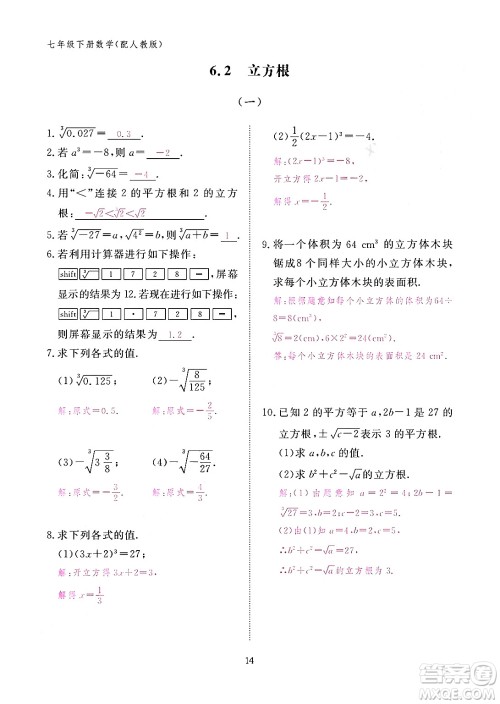 七年级下册数学(配人教版)
6.2 立方根
(一)
1. ∛0.027 = 0.3 .
2. 若 a³=-8,则 a= -2 .
3. 化简:∛-64 = -4 .
4. 用“<”连接 2 的平方根和 2 的立方
根: -√2<∛2<√2 .
5. 若∛-27=a,√4²=b,则∛a+b= 1 .
6. 若利用计算器进行如下操作:
shift ∛ 1 7 2 8 =,屏幕
显示的结果为 12.若现在进行如下操作:
shift ∛ 1 · 7 2 8 =,
则屏幕显示的结果为 1.2 .
7. 求下列各式的值.
(1)∛0.125; (2)-∛8/125;
解:原式=0.5. 解:原式=-2/5.
(3)-∛3 3/8; (4)-∛-64/27.
解:原式=-3/2. 解:原式=4/3.
8. 求下列各式的值.
(1)(3x+2)³=27;
解:开立方得3x+2=3,
解得 x=1/3.
(2)1/2(2x-1)³=-4.
解:(2x-1)³=-8,
开立方得2x-1=-2,
解得 x=-1/2.
9. 将一个体积为 64 cm³ 的立方体木块
锯成8个同样大小的小立方体木块,
求每个小立方体木块的表面积.
解:根据题意知小立方体的体积为64÷
8=8,
∛8=2,2×2×6=24.
答:每个小立方体木块的表面积为24.
10. 已知 2 的平方等于 a,2b-1 是 27 的
立方根,±√c-2表示 3 的平方根.
(1)求 a,b,c 的值.
(2)求 b²+c²-1 的立方根.
解:(1)由题意知 a=2²=4,2b-1=
∛27=3,c-2=3,
∴a=4,b=2,c=5.
(2)由(1)知 b=2,c=5,
∴b²+c²-1=4+25-1=28,
∴b²+c²-1的立方根是∛28.
14
答案圈